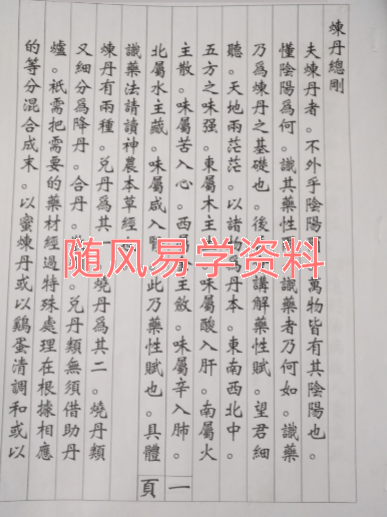 煉丹總剛
夫煉丹者。不外乎陰陽 萬物皆有其陰陽也。
懂陰陽為何。識其藥性 識藥者乃何如。識藥
乃為煉丹之基礎也。後 講解藥性賦。望君細
聽。天地兩茫茫。以諸 為丹本。東南西北中。
五方之味强。東屬木主 味屬酸入肝。南屬火
主散。味屬苦入心。西屬 主斂。味屬辛入肺。
北屬水主藏。味屬咸入 此乃藥性賦也。具體
識藥法請讀神農本草經
煉丹有兩種。兑丹為其一 燒丹為其二。燒丹類
又細分為降丹。合丹。 兑丹類無須借助丹
爐。祇需把需要的藥材經過特殊處理在根據相應
的等分混合成末。以蜜煉丹或以鷄蛋清調和或以
一頁
随风易学资料